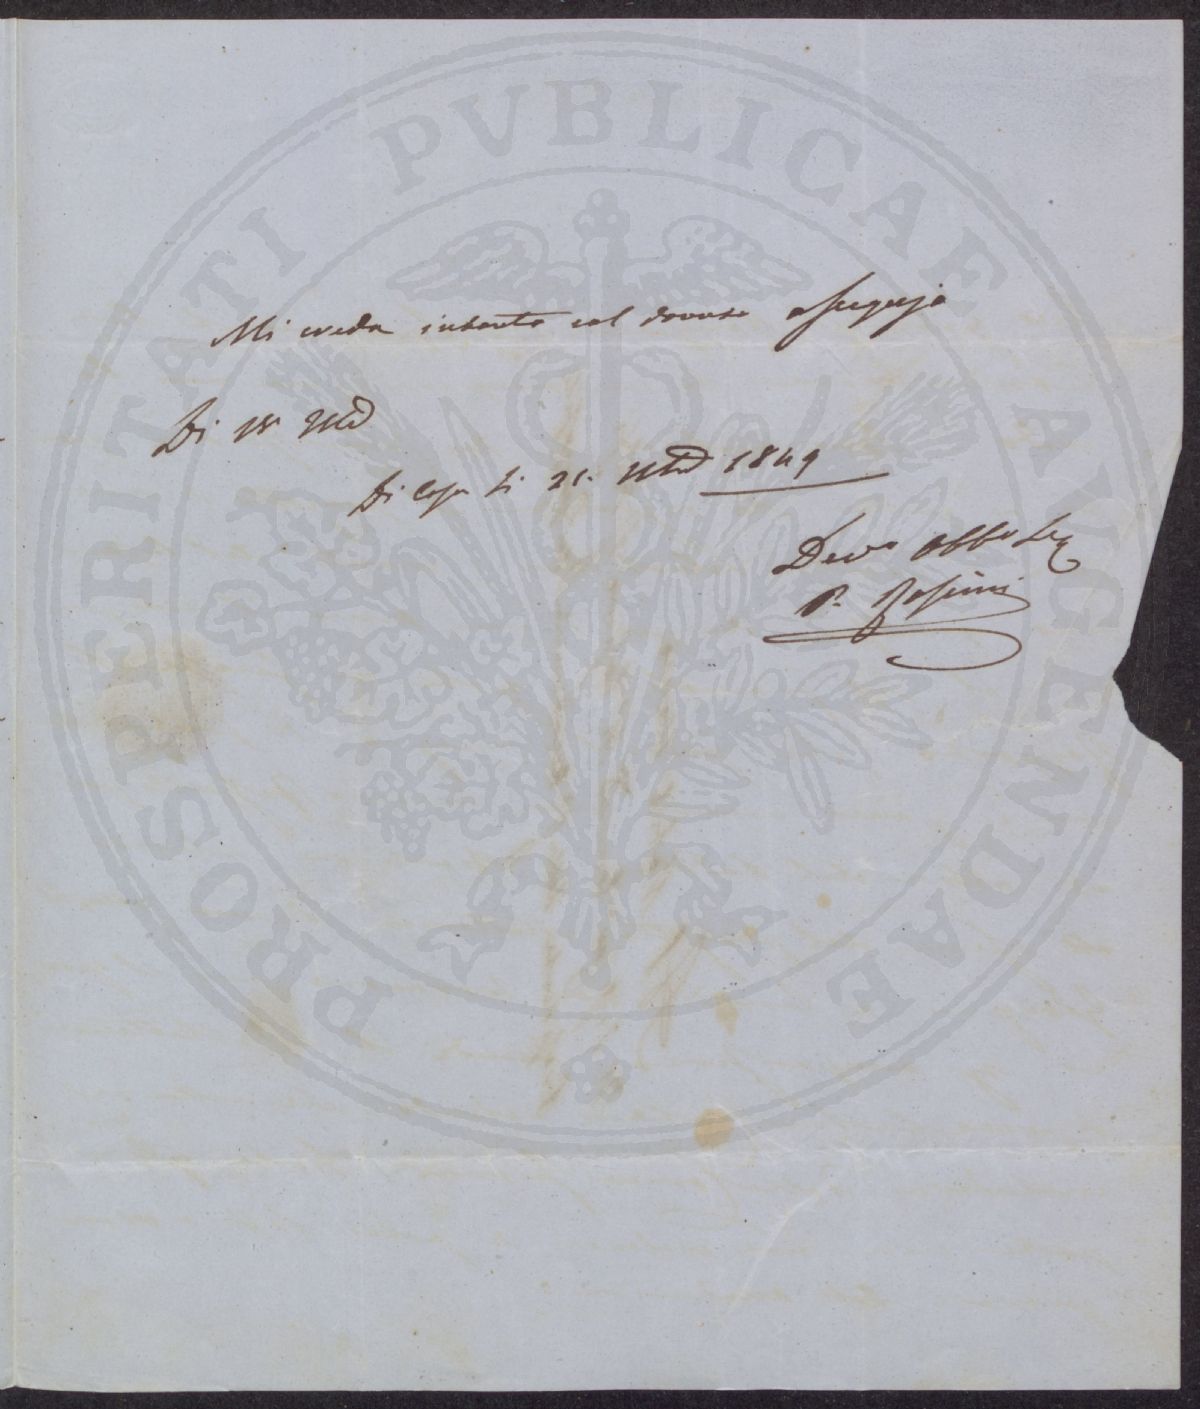 PROSPERITATI PVBLICAE AVGENDAE
Mi creda intanto col dovuto ossequio
Di
Di Casa li 21. 1849
Devo Obbo
P. Rosini